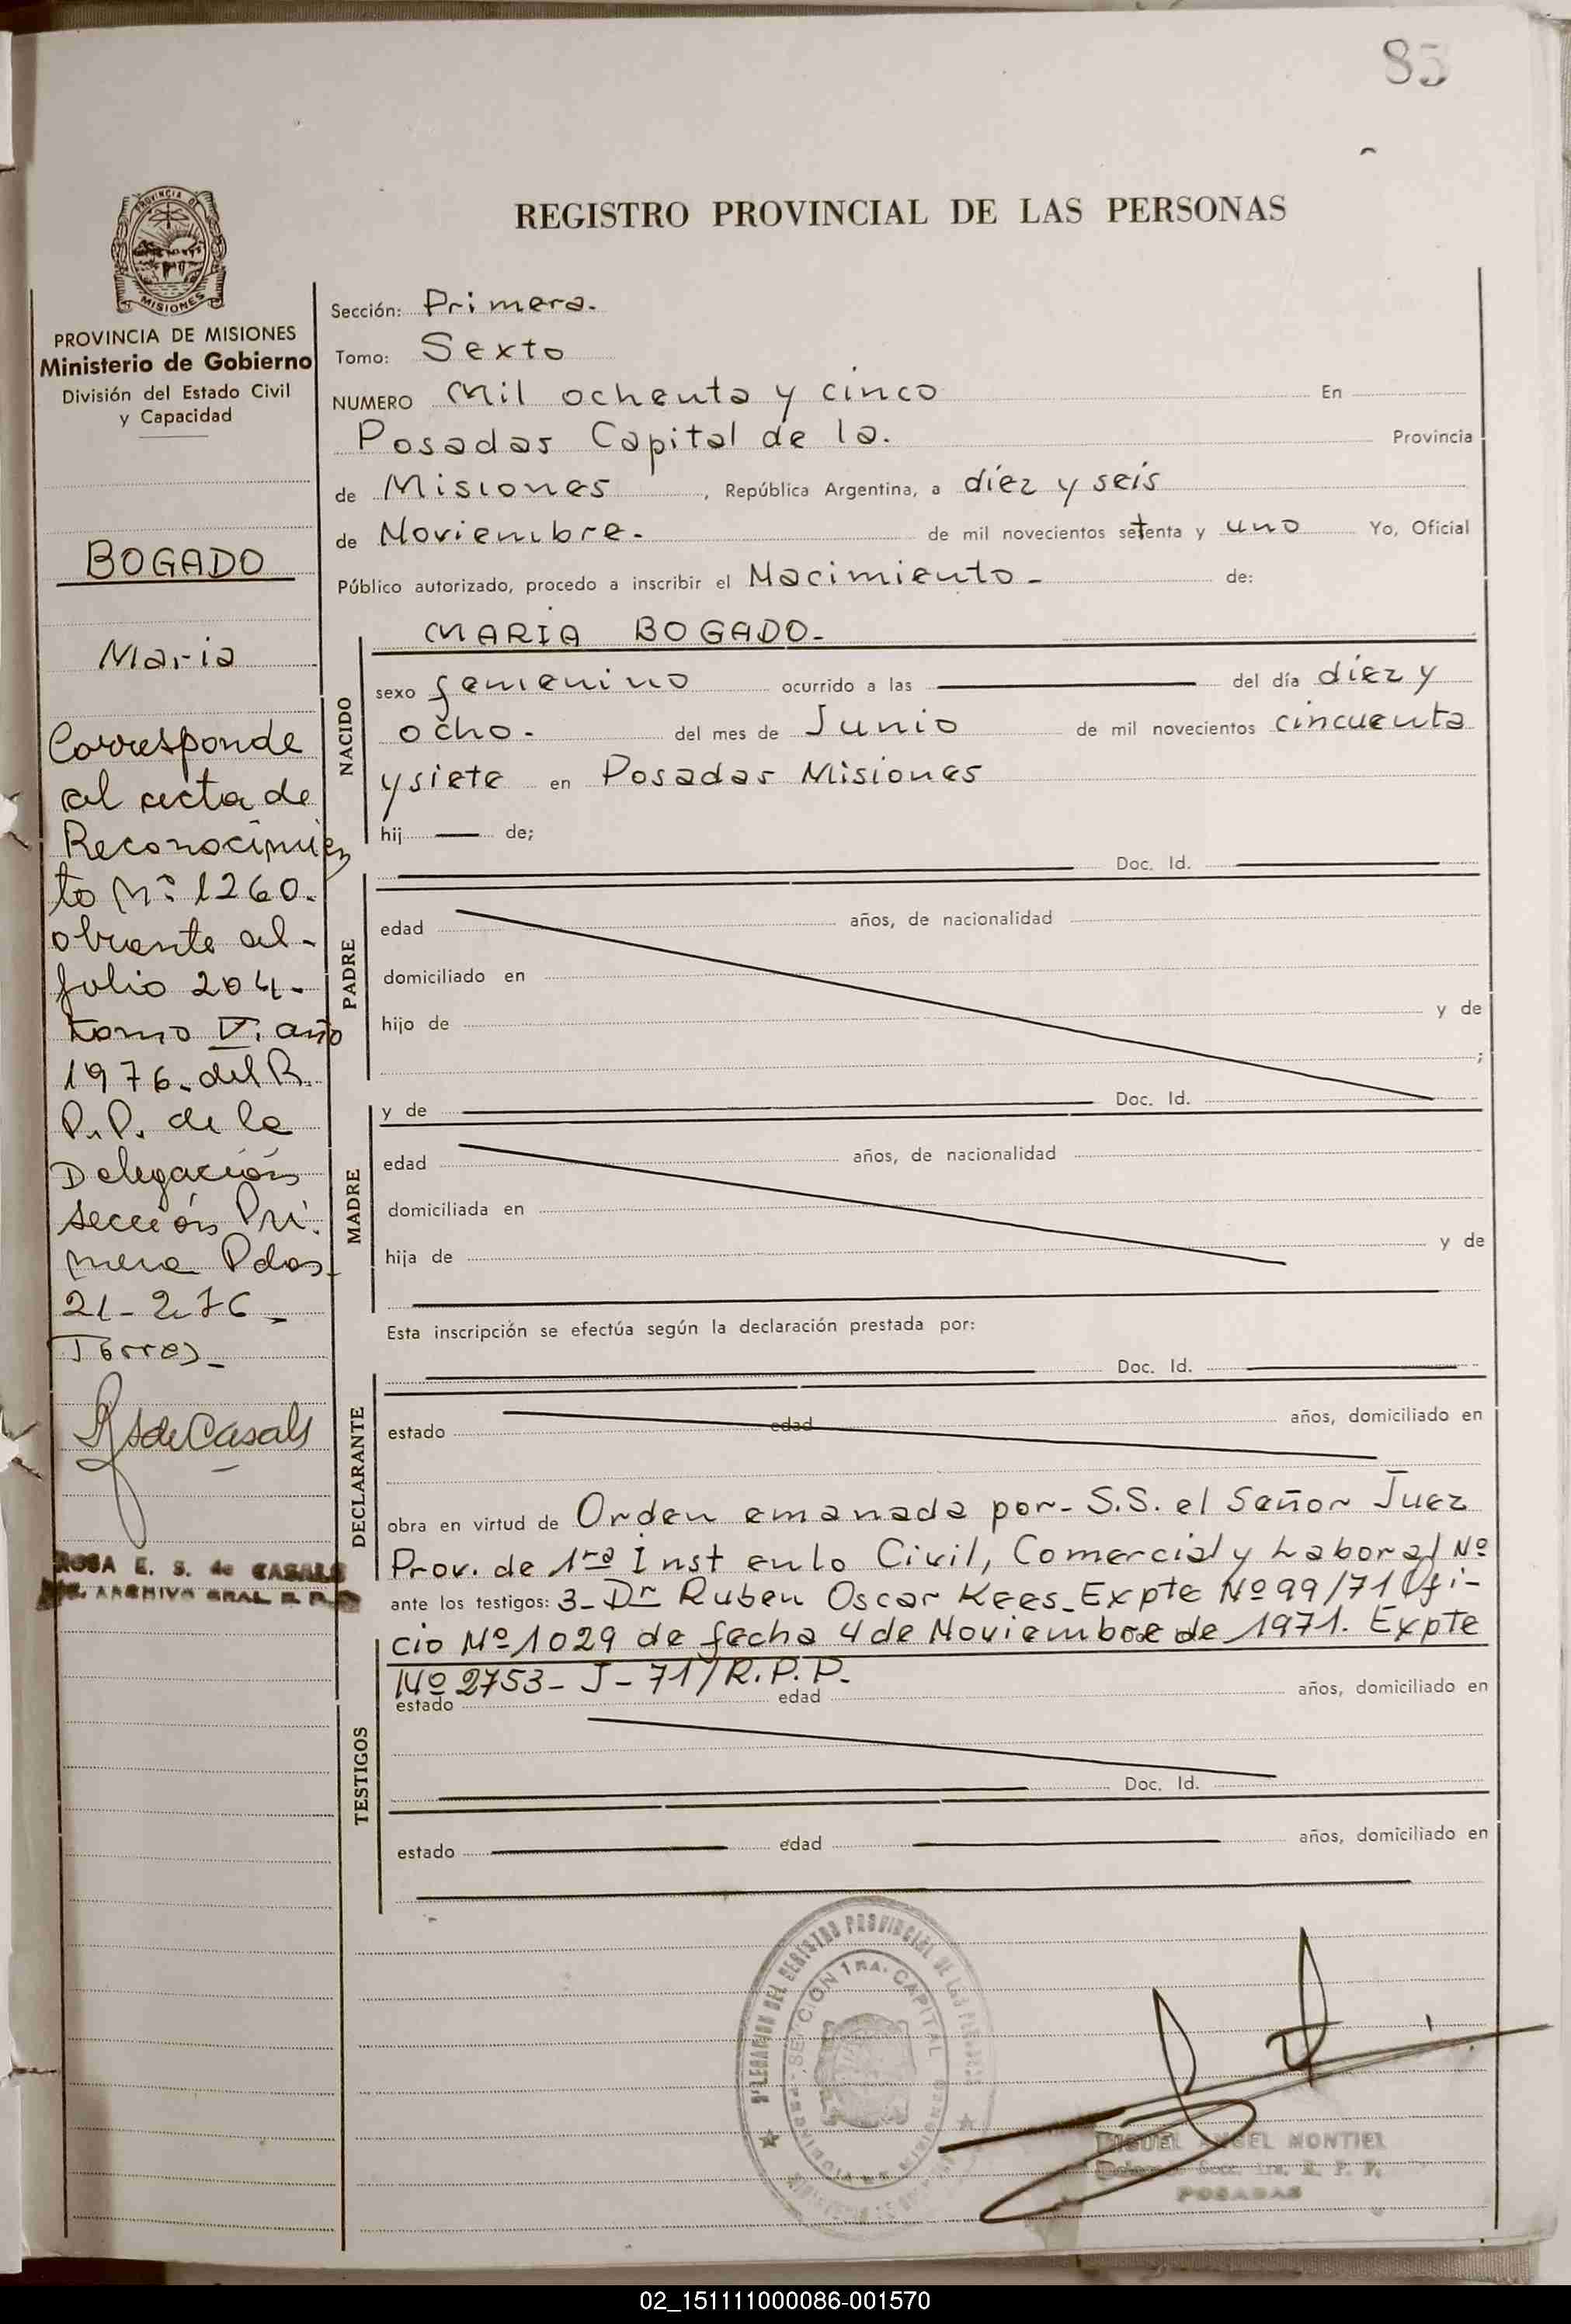 85
REGISTRO PROVINCIAL DE LAS PERSONAS
PROVINCIA DE MISIONES
Ministerio de Gobierno
División del Estado Civil
y Capacidad
BOGADO
Maria
Corresponde
al acta de
Reconocimien
to Nº 1260.
obrante al-
folio 204-
tomo V. año
1976. del R.
P.P. de la
Delegación
sección Pri.
mera Pdas-
21-2-76-
Torres-
RSdeCasals
ROSA E. S. de CASALS
ARCHIVO GRAL R. P.
Sección: Primera.
Tomo: Sexto
NUMERO Mil ochenta y cinco En
Posadas Capital de la. Provincia
de Misiones, República Argentina, a diez y seis
de Noviembre. de mil novecientos setenta y uno Yo, Oficial
Público autorizado, procedo a inscribir el Nacimiento- de:
MARIA BOGADO-
NACIDO
sexo femenino ocurrido a las del día diez y
ocho. del mes de Junio de mil novecientos cincuenta
y siete en Posadas Misiones
hij de;
Doc. Id.
PADRE
edad años, de nacionalidad
domiciliado en
hijo de y de
;
y de Doc. Id.
MADRE
edad años, de nacionalidad
domiciliada en
hija de y de
Esta inscripción se efectúa según la declaración prestada por:
Doc. Id.
DECLARANTE
estado edad años, domiciliado en
obra en virtud de Orden emanada por- S.S. el Señor Juez
Prov. de 1ra Inst en lo Civil, Comercial y Laboral Nº
ante los testigos: 3-Dr Ruben Oscar Kees-Expte Nº 99/71 Ofi-
cio Nº 1029 de fecha 4 de Noviembre de 1971. Expte
Nº 2753-J-71/R.P.P.
TESTIGOS
estado edad años, domiciliado en
Doc. Id.
estado edad años, domiciliado en
DELEGACION DEL REGISTRO PROVINCIAL DE LAS PERSONAS
SECCION 1RA. CAPITAL
MIGUEL ANGEL MONTIEL
Secc. 1ra. R. P. P.
POSADAS
02_151111000086-001570